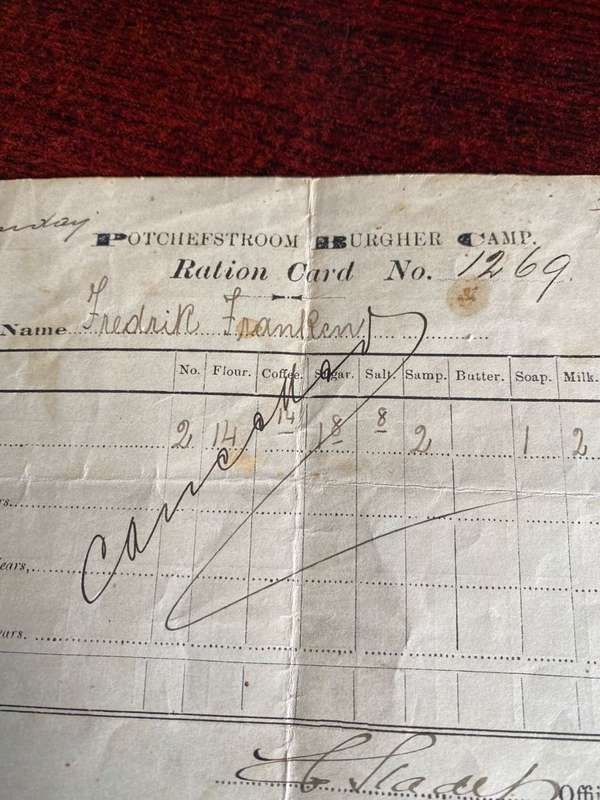 POTCHEFSTROOM BURGHER CAMP.
Ration Card No. 1269.
Name Fredrik Franken
No. Flour. Coffee. Sugar. Salt. Samp. Butter. Soap. Milk.
2 14 14 18 8 2 1 2
cancelled
rs.
Years,
ears.
Offi